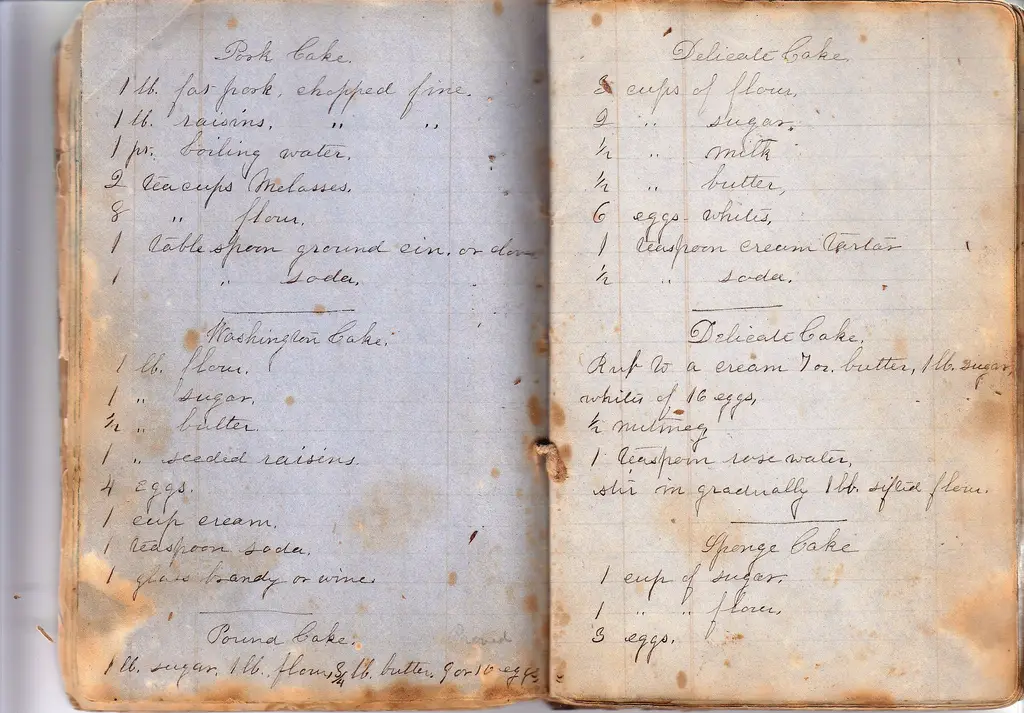 Pork Cake.
1 lb. fat pork, chopped fine.
1 lb. raisins, " "
1 pt. boiling water.
2 teacups Molasses.
8 " flour.
1 tablespoon ground cin. or clov
1 " soda.
Washington Cake.
1 lb. flour.
1 " sugar.
½ " butter.
1 " seeded raisins.
4 eggs.
1 cup cream.
1 teaspoon soda.
1 glass brandy or wine.
Pound Cake.
1 lb. sugar, 1 lb. flour, 3/4 lb. butter. 9 or 10 eggs
Delicate Cake.
3 cups of flour,
2 " sugar,
½ " milk
½ " butter,
6 eggs whites,
1 teaspoon cream tartar
½ " soda.
Delicate Cake.
Rub to a cream 7 oz. butter, 1 lb. sugar,
whites of 16 eggs,
½ nutmeg
1 teaspoon rose water,
stir in gradually 1 lb. sifted flour.
Sponge Cake
1 cup of sugar,
1 " " flour,
3 eggs.